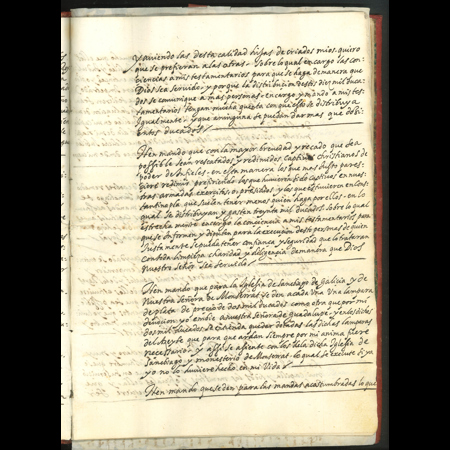 y aviendo las desta calidad hijas de criados mios, quiero
que se prefieran a las otras. sobre lo qual encargo las con-
ciencias a mis testamentarios para que se haga de manera que
Dios sea servido, y porque la distribucion destos diez mil duca-
dos se comunique a mas personas encargo y mando a mis tes-
tamentarios tengan mucha quenta con que esto se distribuya
igualmente. y que a ninguna se puedan dar mas que
ducados
Iten mando que con la mayor brevedad y recado que sea
possible sean rescatados y redimidos Captivos christianos de
poder de infieles en esta manera los que mas justo pares-
ciere redimir prefiriendo los que huvieren sido captivos en nues-
tras armadas, exercitos, o presidios y los que estuvieren en Cons-
tantinopla que suelen tener menos quien haga por ellos. en lo
qual se distribuyan y gasten treynta mil ducados. Sobre lo qual
estrechamente encargo la conciencia a mis testamentarios, para
que se informen y diputen para la execucion desto personas de quien
justamente se pueda tener confiança y seguridad que lo trataran
con toda limpieza charidad y diligencia de manera que Dios
nuestro Señor sea servido.
Iten mando que para la Iglesia de Santiago de Galicia, y de
nuestra Señora de Monserrat se den a cada una una lampara
de plata de precio de dos mil ducados como otra que por mi
devucion yo embie a nuestra Señora de guadalupe, y en los dichos
dos mil ducados se entienda quedar dotadas las dichas lamparas
del Azeyte que para que ardan siempre por mi anima fuere
necessario. y assi se assiente con los de la dicha Iglesia de
Santiago, y monasterio de Monserrat. lo qual se excuse si ya
yo no lo huviere hecho en mi vida
Iten mando que se den para las mandas acostumbradas lo que